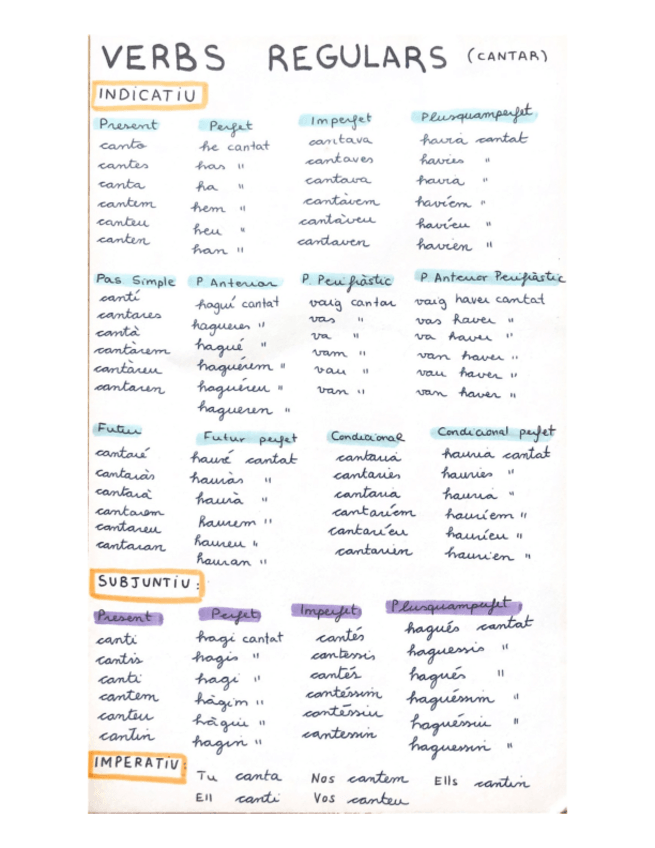 VERBS REGULARS (CANTAR)
INDICATIU
Present Perfet Imperfet Plusquamperfet
canto he cantat cantava havia cantat
cantes has " cantaves havies "
canta ha " cantava havia "
cantem hem " cantàvem havíem "
canteu heu " cantàveu havíeu "
canten han " cantaven havien "
Pas Simple P Anterior P. Perifràstic P Anterior Perifràstic
cantí haguí cantat vaig cantar vaig haver cantat
cantares hagueres " vas " vas haver "
cantà hagué " va " va haver "
cantàrem haguérem " vam " van haver "
cantàreu haguéreu " vau " vau haver "
cantaren hagueren " van " van haver "
Futur Futur perfet Condicional Condicional perfet
cantaré hauré cantat cantaria hauria cantat
cantaràs hauràs " cantaries hauries "
cantarà haurà " cantaria hauria "
cantarem haurem " cantaríem hauríem "
cantareu haureu " cantaríeu hauríeu "
cantaran hauran " cantarien haurien "
SUBJUNTIU:
Present Perfet Imperfet Plusquamperfet
canti hagi cantat cantés hagués cantat
cantis hagis " cantessis haguessis "
canti hagi " cantés hagués "
cantem hàgim " cantéssim haguéssim "
canteu hàgiu " cantéssiu haguéssiu "
cantin hagin " cantessin haguessin "
IMPERATIU:
Tu canta Nos cantem Ells cantin
Ell canti Vos canteu